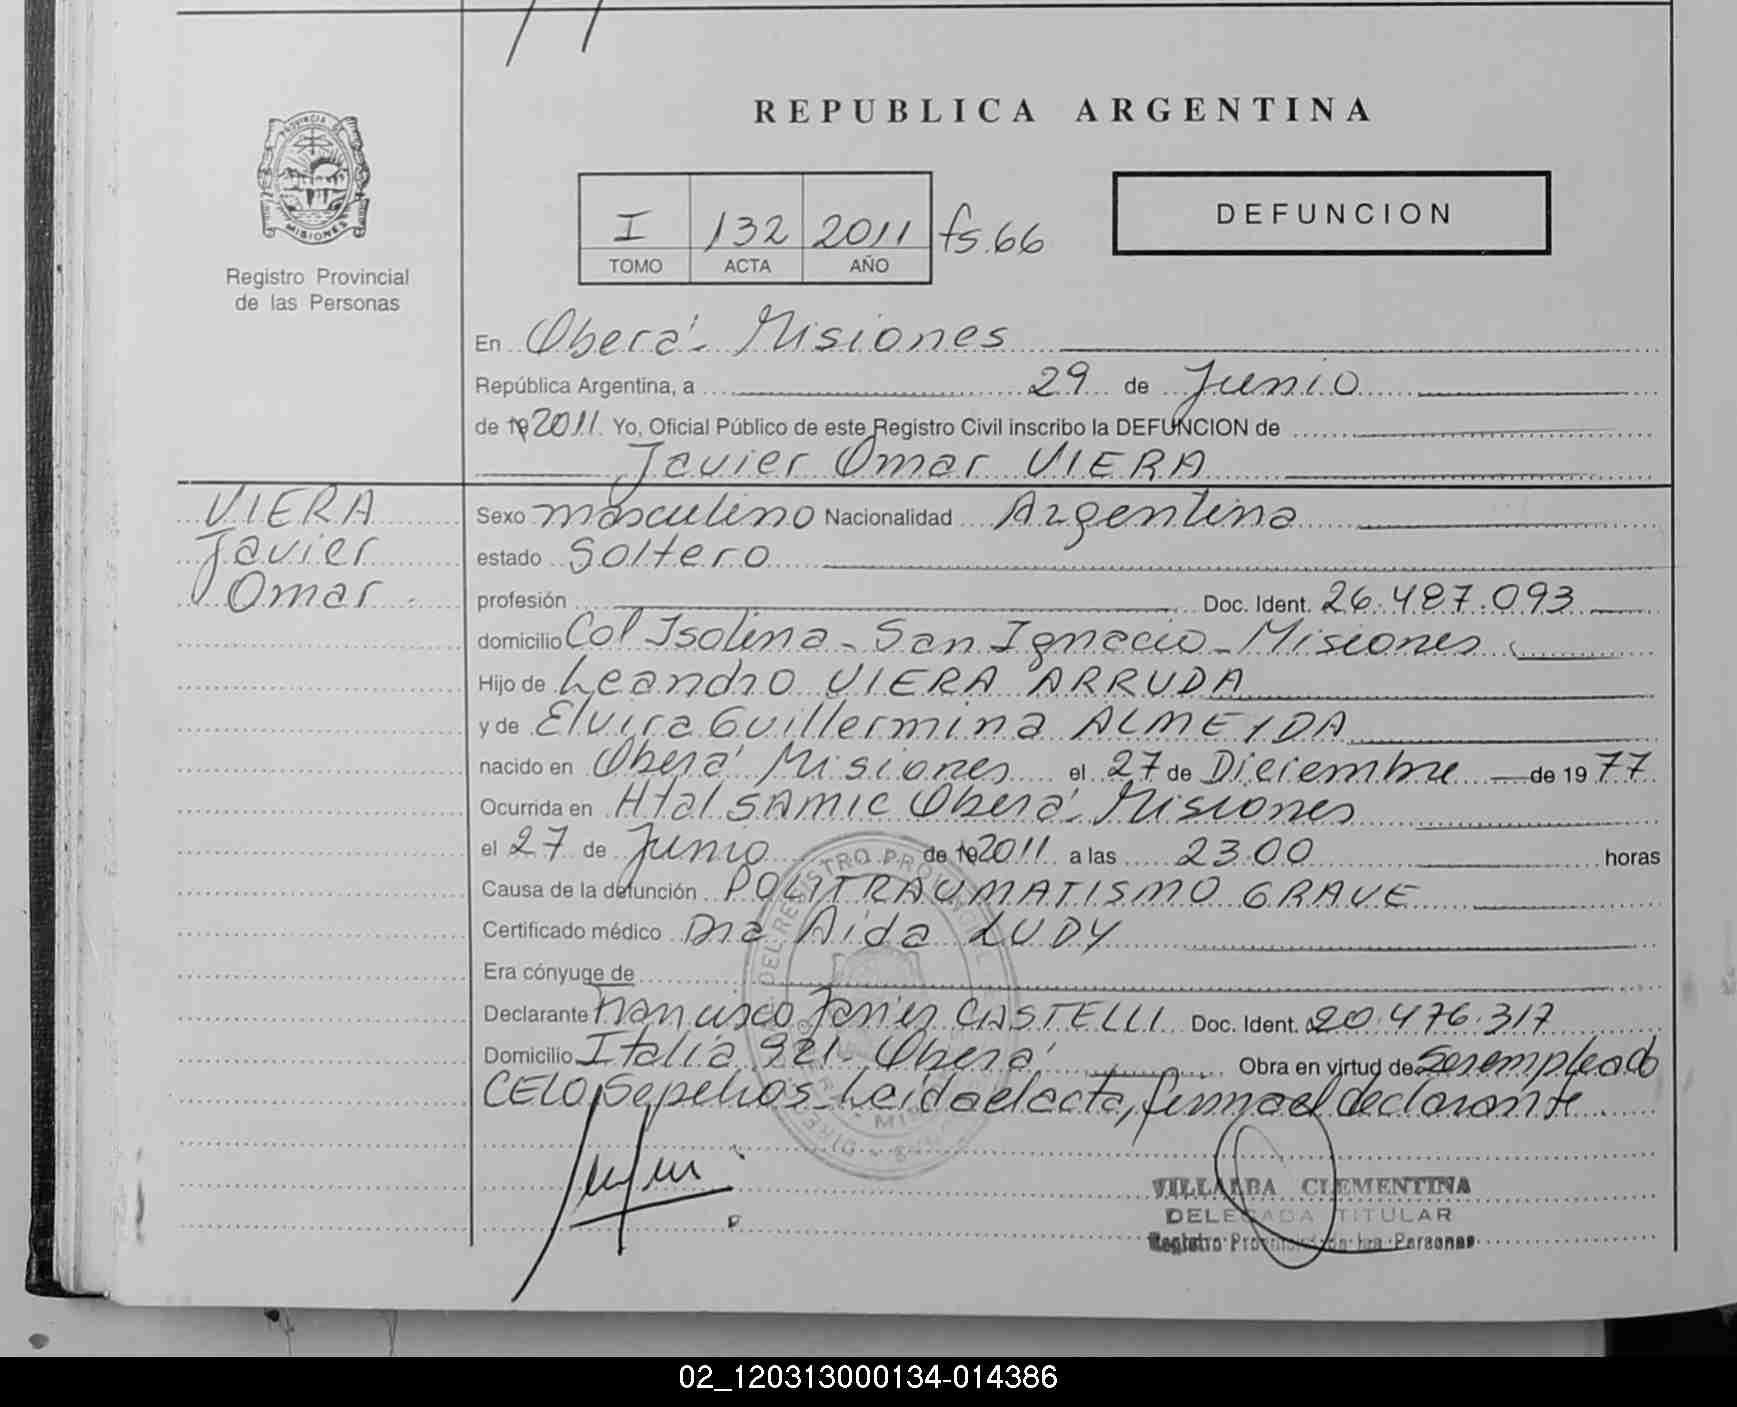 REPUBLICA ARGENTINA
PROVINCIA DE
MISIONES
Registro Provincial
de las Personas
I 132 2011 fs.66
TOMO ACTA AÑO
DEFUNCION
En Oberá - Misiones
República Argentina, a 29 de Junio
de 19 2011. Yo, Oficial Público de este Registro Civil inscribo la DEFUNCION de
Javier Omar VIERA
VIERA
Javier
Omar
Sexo masculino Nacionalidad Argentina
estado Soltero
profesión Doc. Ident. 26.487.093
domicilio Col Isolina - San Ignacio - Misiones
Hijo de Leandro VIERA ARRUDA
y de Elvira Guillermina ALMEYDA
nacido en Oberá Misiones el 27 de Diciembre de 19 77
Ocurrida en Htal SAMIC Oberá - Misiones
el 27 de Junio de 19 2011 a las 23.00 horas
Causa de la defunción POLITRAUMATISMO GRAVE
Certificado médico Dra Aida LUDY
Era cónyuge de
Declarante Francisco Javier CASTELLI Doc. Ident. 20.476.317
Domicilio Italia 921 - Oberá Obra en virtud de Ser empleado
CELO Sepelios - Leida el acta, firma el declarante
VILLALBA CLEMENTINA
DELEGADA TITULAR
Registro Provincial de las Personas
02_120313000134-014386